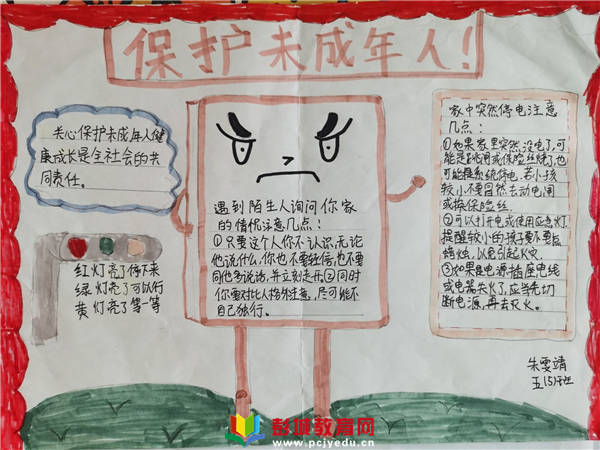 保护未成年人!
关心保护未成年人健
康成长是全社会的共
同责任。
红灯亮了停下来
绿灯亮了可以行
黄灯亮了等一等
遇到陌生人询问你家
的情况注意几点:
①只要这个人你不认识,无论
他说什么,你也不要轻信,也不要
同他多说话,并立刻走开,②同时
你要对比人格外注意,尽可能不
自己独行。
家中突然停电注意
几点:
①如果家里突然没电了,可
能是跳闸或保险丝烧了,也
可能是系统停电,若小孩
较小不要自然去动电闸
或换保险丝
②可以打开电或使用应急灯
提醒较小的孩子要不要点
蜡烛,以免引起火灾
③如果是电源插座电线
或电器失火了,应当先切
断电源,再去灭火。
朱雯靖
五(5)班
彭城教育网
www.pcjyedu.cn